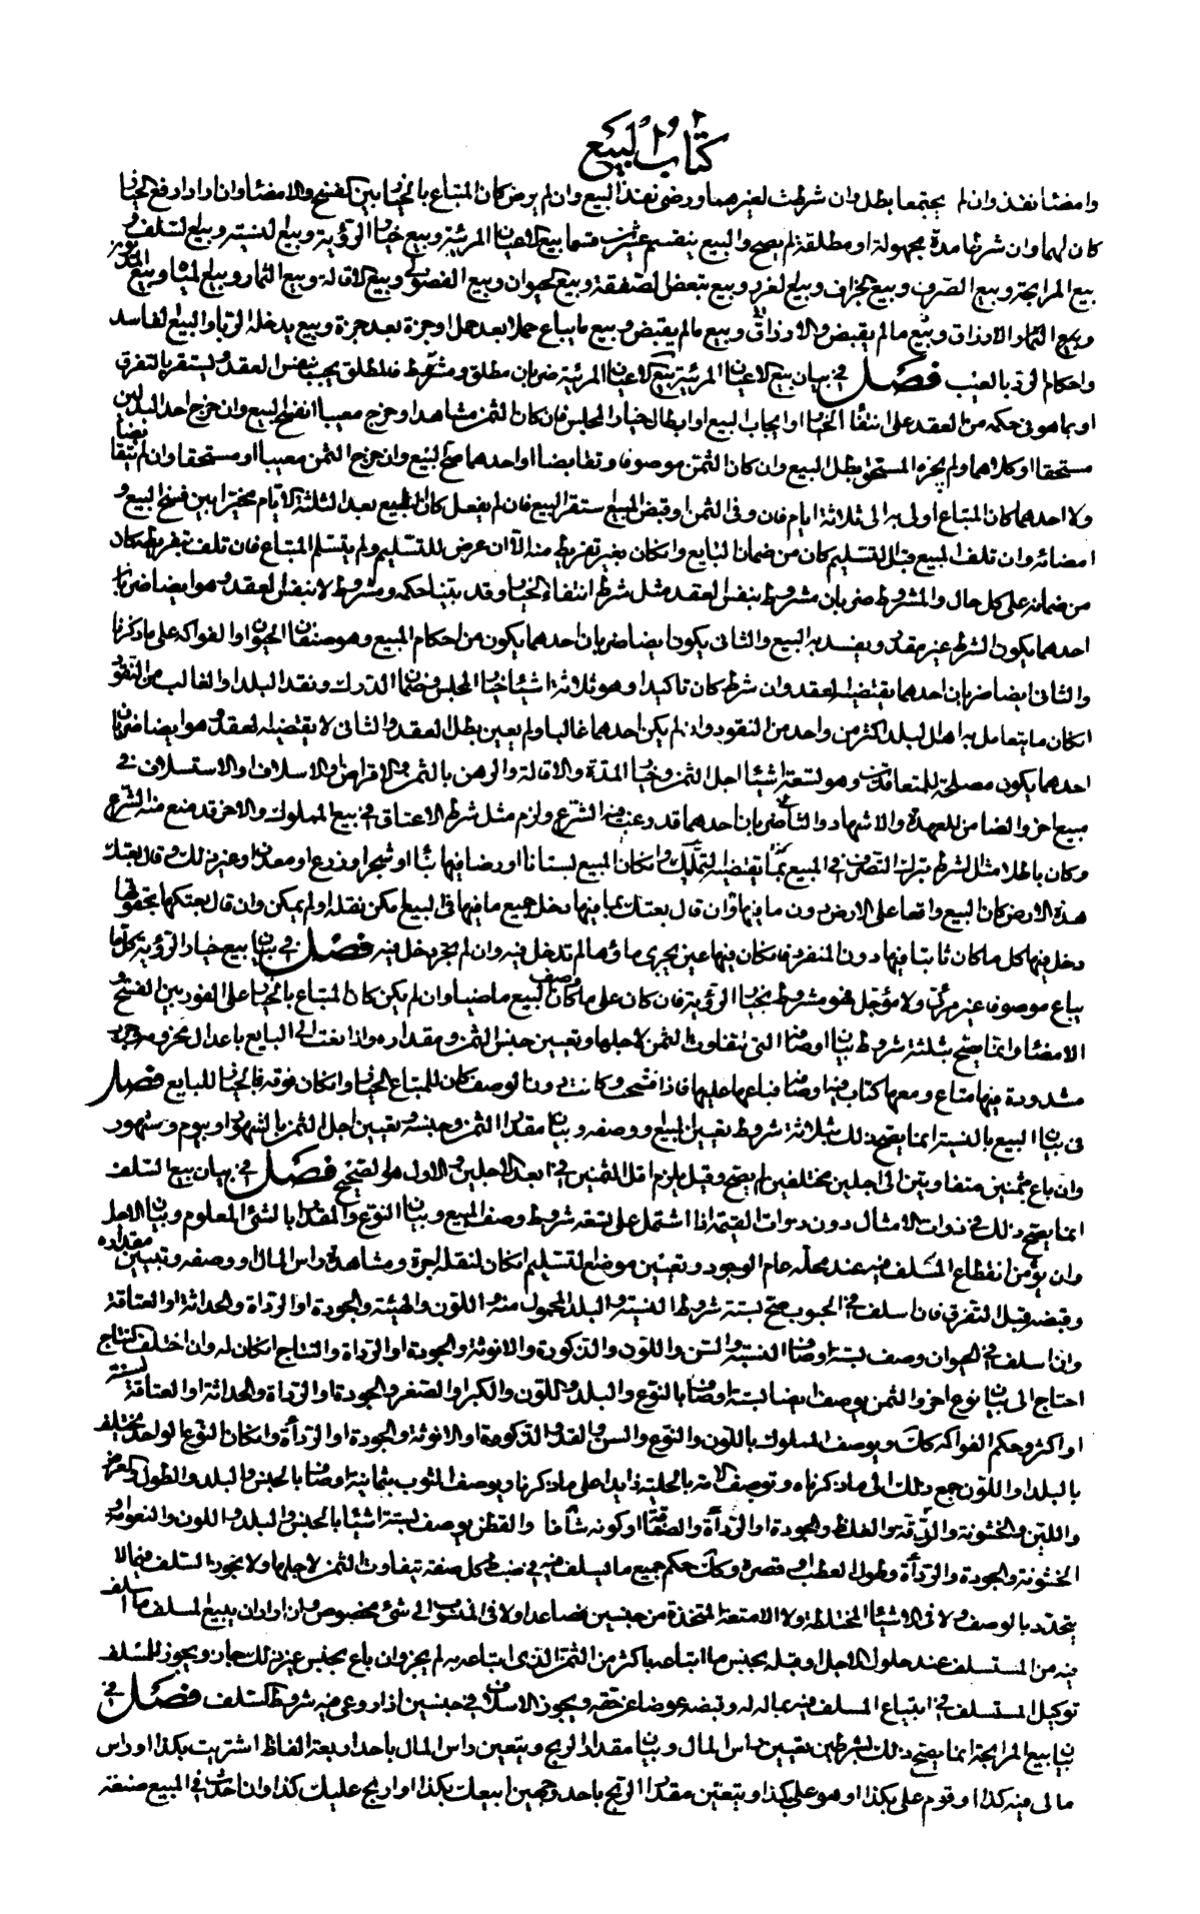 كتاب البيع
وامضيا نفذ وان لم يجتمعا بطل وان شرطت لغيرهما ورضى نفذ البيع وان لم يرض كان المبتاع بالخيار بين الفسخ والامضاء وان اراد رفع الخيار
كان لهما وان شرطا مدة مجهولة او مطلقة لم يصح والبيع ينقسم عشرين قسما بيع الاعيان المرئية وبيع خيار الرؤية وبيع النسية وبيع السلف و
بيع المرابحة وبيع الصرف وبيع الجزاف وبيع الغرر وبيع تبعض الصفقة وبيع الحيوان وبيع الفضولى وبيع الاقالة وبيع الثمار وبيع المياه وبيع
وبيع الثمار الارزاق وبيع ما لم يقبض والارزاق وبيع ما لم يقبض وبيع ما يباع حملا بعد حمل او جزة بعد جزة وبيع يدخله الربا والبيع الفاسد
واحكام الرد بالعيب فصل في بيان بيع الاعيان المرئية بيع الاعيان المرئية ضربان مطلق ومشروط فالمطلق يجب بنفس العقد ويستقر بالتفرق
او بما هو في حكمه من العقد على انتفاء الخيار او ايجاب البيع او ابطال خيار المجلس فان كان الثمن مشاهدا وخرج معيبا انفسخ البيع وان خرج احد البدلين
مستحقا او كلاهما ولم يجزه المستحق بطل البيع وان كان الثمن موصوفا وتقابضا او احدهما صح البيع وان خرج الثمن معيبا او مستحقا وان لم يتقابضا
ولا احدهما كان المبتاع اولى به الى ثلاثة ايام فان وفى الثمن او قبض المبيع استقر البيع فان لم يفعل كان البايع بعد الثلثة الايام مخيرا بين فسخ البيع و
امضائه وان تلف المبيع قبل التسليم كان من ضمان البايع وان كان بغير تفريط منه الا ان عرض للتسليم ولم يتسلم المبتاع فان تلف بتفريطه كان
من ضمانه على كل حال والمشروط ضربان مشروط بنفس العقد مثل شرط انتفاء الخيار وقد بينا حكمه ومشروط لا بنفس العقد وهو ايضا ضربان
احدهما يكون الشرط غير مقدور ويفسد به البيع والثانى يكون ايضا ضربان احدهما يكون من احكام المبيع وهو صنفان الحيوان والفواكه على ما ذكرنا
والثانى ايضا ضربان احدهما يقتضيه العقد وان شرط كان تاكيدا وهو ثلاثة اشياء خيار المجلس وضمان الدرك ونقد البلد او الغالب من النقود
ان كان ما يتعامل به اهل البلد اكثر من واحد من النقود وان لم يكن احدهما غالبا ولم يعين بطل العقد والثانى لا يقتضيه العقد وهو ايضا ضربان
احدهما يكون مصلحة للمتعاقدين وهو تسعة اشياء اجل الثمن وخيار المدة والاقالة والرهن بالثمن والاقراض والاسلاف والاستسلاف في
مبيع اخر والضامن للعهدة والاشهاد والثانى ضربان احدهما قد رغب فيه الشرع ولزم مثل شرط الاعتاق في بيع المملوك والاخر قد منع منه الشرع
وكان باطلا مثل شرط ترك التصرف في المبيع بما يقتضيه التمليك وان كان المبيع بستانا او رضا فيها بناء او شجر او زرع او معدن او غير ذلك وقال بعتك
هذه الارض كان البيع واقعا على الارض دون ما فيها وان قال بعتك بما فيها دخل جميع ما فيها في البيع امكن نقله او لم يمكن وان قال بعتكها بحقوقها
دخل فيها كل ما كان ثابتا فيها دون المنفرد فان كان فيها عين يجرى ماؤها لم تدخل فيه وان لم يجر دخل فيه فصل في بيان بيع خيار الرؤية كل ما
يباع موصوفا غير مرئى ولا مؤجل فهو مشروط بخيار الرؤية فان كان على ما وصف كان البيع ماضيا وان لم يكن كان المبتاع بالخيار على الفور بين الفسخ و
الامضاء وانما يصح بثلثة شروط بيان اوصاف التى يتفاوت الثمن لاجلها وتعيين جنس الثمن ومقداره واذا بعث الى البايع باعدال محزومة
مشدودة فيها متاع ومعها كتاب فيه اوصاف فباعها عليها فاذا فتحت وكانت دون الوصف كان للمبتاع الخيار وان كان فوقه فالخيار للبايع فصل
في بيان البيع بالنسية انما يصح ذلك بثلاثة شروط تعيين المبيع ووصفه وبيان مقدار الثمن وجنسه وتعيين اجل الثمن بالشهور او بيوم وشهور
وان باع بثمنين متفاوتين الى اجلين مختلفين لم يصح وقيل يلزم اقل الثمنين في ابعد الاجلين والاول هو الصحيح فصل في بيان بيع السلف
انما يصح ذلك في ذوات الامثال دون ذوات القيمة اذا اشتمل على تسعة شروط وصف المبيع وبيان النوع والمقدار بالشئ المعلوم وبيان الاجل
وان يؤمن انقطاع المسلف فيه عند محله عام الوجود وتعيين موضع التسليم ان كان لنقله اجرة ومشاهدة راس المال او وصفه وتبيين مقداره
وقبضه قبل التفرق فان اسلف في الحبوب صح بستة شروط النسبة والبلد المحمول منه واللون والهيئة والجودة او الرداة والحداثة او العتاقة
واذا سلف في الحيوان وصف بستة اوصاف النسبة والسن واللون والذكورة والانوثة والجودة او الرداة والنتاج ان كان له وان اختلف النتاج
احتاج الى بيان نوع اخر والثمن يوصف ايضا بستة اوصاف بالنوع والبلد واللون والكبر او الصغر والجودة او الرداة والحداثة او العتاقة لسنة
او اكثر وحكم الفواكه كذلك ويوصف المملوك باللون والنوع والسن والقد والذكورة او الانوثة والجودة او الرداة وان كان النوع الواحد مختلف
بالبلد او اللون جمع ذلك الى ما ذكرناه وتوصف الامة بالحلية زايدا على ما ذكرنا ويوصف الثوب بثمانية اوصاف بالجنس والبلد والطول والعرض
واللين والخشونة والرقة والغلظ والجودة او الرداة والصفاقة او كونه شافا والقطن يوصف بستة اشياء بالجنس والبلد واللون والنعومة او
الخشونة والجودة والرداة وطول العطب او قصره وكذلك حكم جميع ما يسلف فيه في ضبط كل صفة يتفاوت الثمن لاجلها ولا يجوز السلف فيما لا
يتحدد بالوصف ولا في الاشياء المختلطة ولا الامتعة المتخذة من جنسين فصاعدا ولا في المنسوب الى شئ مخصوص وان اراد ان يبيع المسلف ما اسلف
فيه من المستسلف عند حلول الاجل او قبله بجنس ما ابتاعه باكثر من الثمن الذى ابتاعه به لم يجز وان باع بجنس غير ذلك جاز ويجوز للمسلف
توكيل المستسلف في ابتياع المسلف فيه بماله له وقبضه عوضا عن حقه ويجوز الاسلاف في جنسين اذا روعى فيه شروط السلف فصل في
بيان بيع المرابحة انما يصح ذلك بشرطين تعيين راس المال وبيان مقدار الربح ويتعين راس المال باحد اربعة الفاظ اشتريت بكذا او راس
مالى فيه كذا او قوم على بكذا او هو على بكذا ويتعين مقدار الربح باحد وجهين ابيعك بكذا او اربح عليك كذا وان احدث في المبيع صنعة